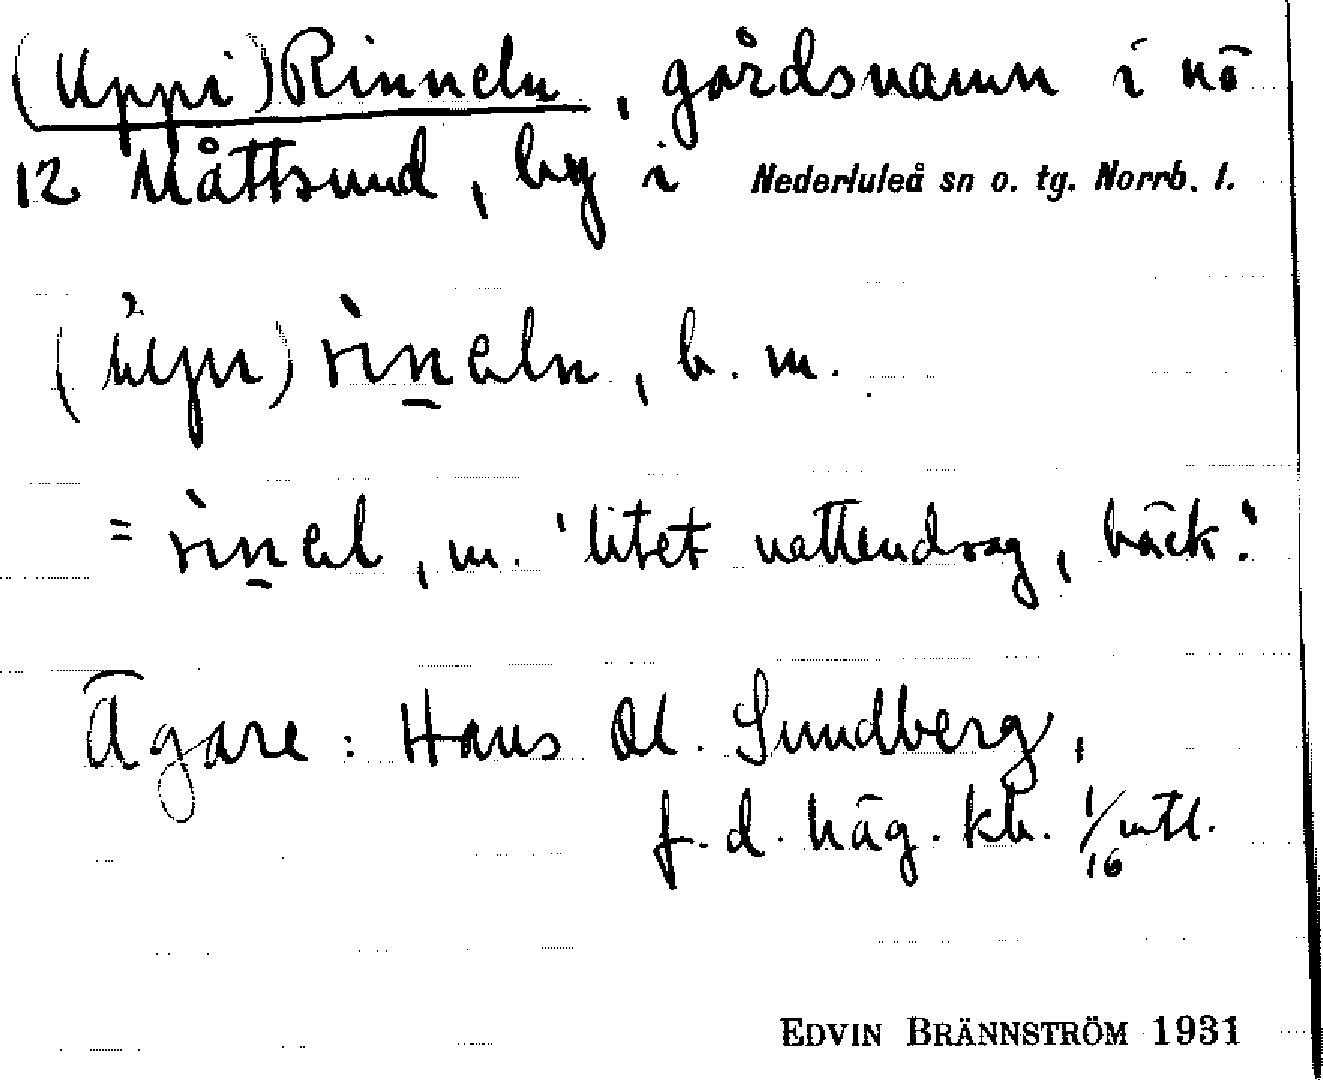 (Uppi) Rinneln, gårdsnamn i nö
12 Måttsund, by i Nederluleå sn o. tg. Norrb. l.
rìn̠eln, b. m.
= rìn̠el, m. 'litet vattendrag, bäck'.
Ägare: Hans Ol. Sundberg,
f. d. häg. kh. 1/16 mtl.
EDVIN BRÄNNSTRÖM 1931